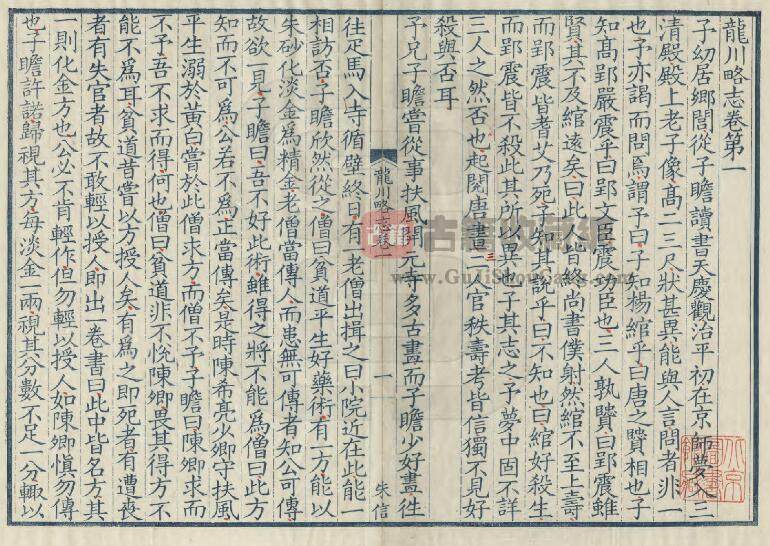 龍川略志卷第一
予幼居鄉閭從子瞻讀書天慶觀治平初在京師夢入三
清殿殿上老子像高二三尺狀甚異能與人言問者非一
也予亦謁而問焉謂予曰子知楊綰乎曰唐之賢相也子
知高郢嚴震乎曰郢文臣震功臣也三人孰賢曰郢震雖
賢其不及綰遠矣曰此人皆終尚書僕射然綰不至上壽
而郢震皆耆艾乃死子知其說乎曰不知也曰綰好殺生
而郢震皆不殺此其所以異也子其志之予夢中固不詳
三人之然否也起閱唐書二官秩壽考皆信獨不見好
殺與否耳
予兄子瞻嘗從事扶風開元寺多古畫而子瞻少好畫往
龍川略志卷一
一
朱信
往疋馬入寺循壁終日有一老僧出揖之曰小院近在此能一
相訪否子瞻欣然從之僧曰貧道平生好藥術有一方能以
朱砂化淡金為精金老僧當傳人而患無可傳者知公可傳
故欲一見子瞻曰吾不好此術雖得之將不能為僧曰此方
知而不可為公若不為正當傳矣是時陳希亮少卿守扶風
平生溺於黃白嘗於此僧求方而僧不予子瞻曰陳卿求而
不予吾不求而得何也僧曰貧道非不悅陳卿畏其得方不
能不為耳貧道昔嘗以方授人矣有為之即死者有遭喪
者有失官者故不敢輕以授人即出一卷書曰此中皆名方其
一則化金方也公必不肯輕作但勿輕以授人如陳卿慎勿傳
也子瞻許諾歸視其方每淡金一兩視其分數不足一分輙以
古籍收藏網
www.GuJiShouCang.com